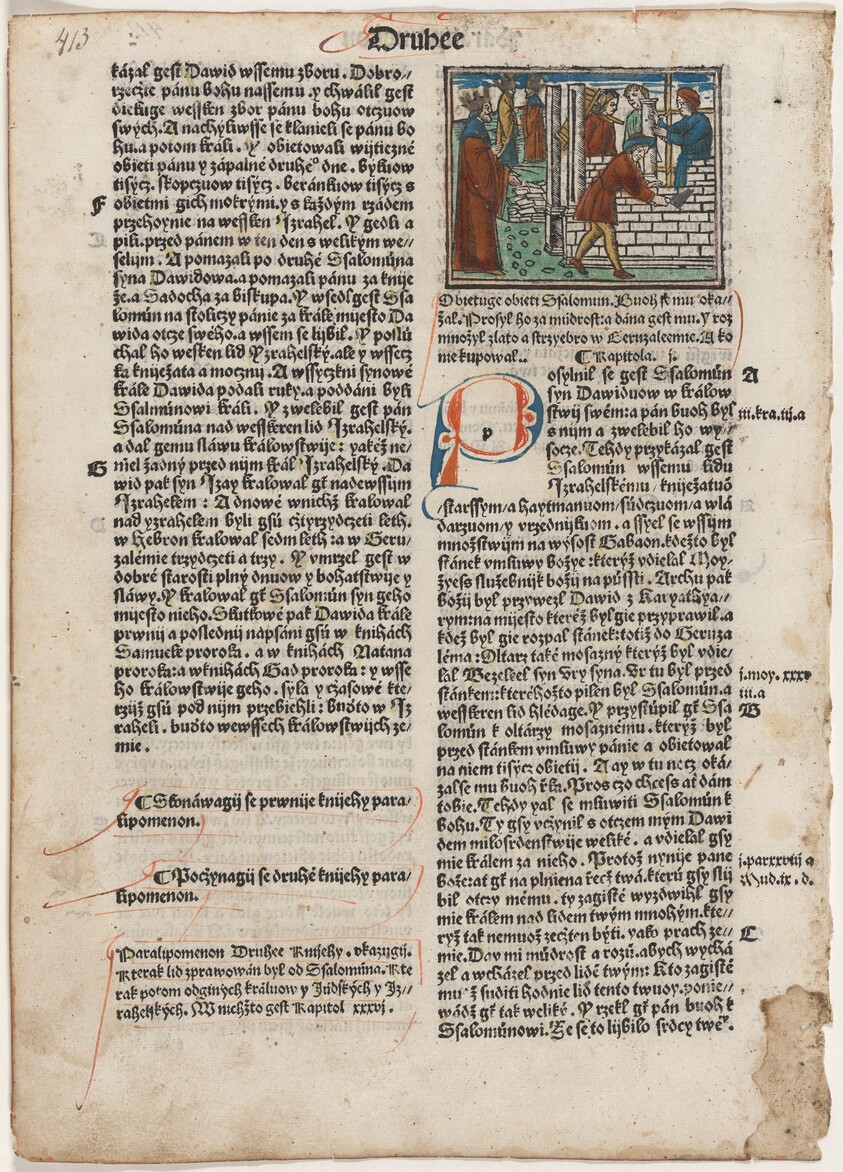 413
Druhee
kázal gest Dawid wssemu zboru. Dobro//
rzečte pánu bohu nassemu. y chwálil gest
wessken zbor pánu bohu otczuow
swých. A nachyliwsse se klanieli se pánu bo
hu. a potom králi. Y obietowali wijtiezné
obieti pánu y zápalné druheº dne. bykuow
tisýcz. skopczuow tisýcz. beránkuow tisýcz s
F
obietmi gich mokrými. y s každým rzádem
přehoynie na wessken Izrahel. Y gedli a
pili. przed pánem w ten den s welikým we//
selijm. A pomazali po druhé Ssalomúna
syna Dawidowa. a pomazali pánu za knije
že. a Sadocha za biskupa. Y wsedl gest Ssa
lomún na stoliczy pánie za krále mijesto Da
wida otcze swého. a wssem se lijbil. Y poslú
chal ho wessken lid Yzrahelský. ale y wssecz
ka kniježata a mocznij. A wssyczkni synowé
krále Dawida podali ruky. a poddáni byli
Ssalmúnowi králi. Y zwelebil gest pán
Ssalomúna nad wessskeren lid Izrahelský.
a dal gemu sláwu králowstwije: yakéž ne/
G
miel žádný przed nijm král Izrahelský. Da
wid pak syn Izay kralowal gt nadewssijm
Izrahelem: A dnowé w nichž kralowal
nad yzrahelem byli gsú cžtyrzydczeti leth.
w Hebron kralowal sedm leth: a w Geru/
zalémie trzydczeti a trzy. Y vmrzel gest w
dobré starosti plný dnuow y bohatstwije y
sláwy. Y kralowal gt Ssalomún syn geho
mijesto nieho. Skutkowé pak Dawida krále
prwnij a poslednij napsáni gsú w knihách
Samuele proroka. a w knihách Natana
proroka: a w knihách Gad proroka: y wsse
ho králowstwije geho. syla y czasowé kte/
rzijž gsú pod nijm przebiehli: budto w Iz
raheli. budto wewssech králowstwijch ze/
mie.
Skonáwagij se prwnije knijehy para/
lipomenon.
Poczýnagij se druhé knijehy para/
lipomenon.
Paralipomenon Druhee Knijehy. vkazugij.
Kterak lid zprawowán byl od Ssalomúna. Kte
rak potom od giných králuow y Júdských y Jz/
rahelských. W nichžto gest Kapitol xxxvj.
Obietuge obieti Ssalomun. Buoh se mu oka//
žal. Prosyl ho za múdrost: a dána gest mu. Y roz
množyl zlato a strzyebro w Geruzaleemie. A ko
nie kupowal.. Kapitola. j.
p
osylnil se gest Ssalomún
A
syn Dawiduow w králow
stwij swém: a pán buoh byl
iii.kra.iij.a
s nijm a zwelebil ho wy//
socze. Tehdy przykázal gest
Ssalomún wssemu lidu
Izrahelskému/ kniježatuo
/starssym/a haytmanuom/súdczuom/a wlá
darzuom/y vrzednijkuom. a ssyel se wssijm
množstwijm na wysost Gabaon. kdežto byl
stánek vmluwy božye: kterýž vdielal Moy/
žyess služebnijk božij na pússti. Archu pak
božij byl przywezl Dawid z Karyathya/
rym: na mijesto kteréž byl gie przyprawil. a
kdež byl gie rozpal stánek: totiž do Geruza
léma: Oltarz také mosazný kterýž byl vdie/
lal Bezeleel syn Vry syna. Vr tu byl przed
j.moy. xxxv
stánkem: kteréhožto pilen byl Ssalomún. a
iii.a
wessskeren lid hledage. Y przystúpil gt Ssa
B
lomún k oltárzy mosaznému. kterýž byl
przed stánkem vmluwy pánie a obietowal
na niem tisýcz obietij. A ay w tu nocz oká/
zal se mu buoh řka. Pros czo chcess ať dám
tobie. Tehdy yal se mluwiti Ssalomún k
bohu. Ty gsy vczynil s otczem mým Dawi
dem milosrdenstwije weliké. a vdielal gsy
mie králem za nieho. Protož nynije pane
j.parxxviij a
bože: ať gt naplniena řecž twá. kterú gsy slij
Mud.ix. d.
bil otczy mému. ty zagisté wyzdwihl gsy
mie králem nad lidem twým mnohým. kte//
ryž tak nemuož zecžten býti. yako prach ze//
C
mie. Day mi múdrost a rozú. abych wychá
zel a wcházel przed lidé twým: Kto zagisté
muž súditi hodnie lid tento twuoy. ponie//
wádž gt tak weliké. Y rzekl gt pán buoh k
Ssalomúnowi. Že se to lijbilo srdcy tweº.